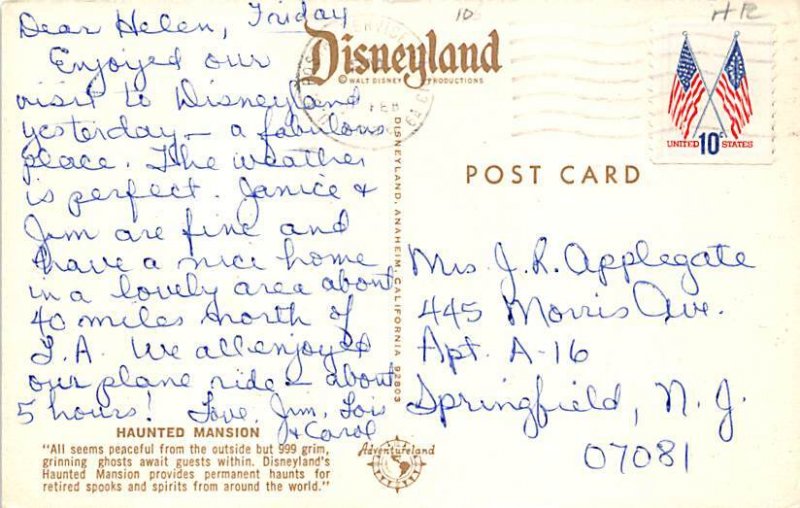 Friday
Dear Helen,
Enjoyed our
visit to Disneyland
yesterday - a fabulous
place. The weather
is perfect. Janice &
Jim are fine and
have a nice home
in a lovely area about
40 miles north of
L.A. We all enjoyed
our plane ride - about
5 hours! Love, Jim, Lois
& Carol
HAUNTED MANSION
"All seems peaceful from the outside but 999 grim,
grinning ghosts await guests within. Disneyland's
Haunted Mansion provides permanent haunts for
retired spooks and spirits from around the world."
Adventureland
10
HR
Disneyland
© WALT DISNEY PRODUCTIONS
FEB
DISNEYLAND, ANAHEIM, CALIFORNIA 92803
POST CARD
UNITED 10c STATES
Mrs. J. R. Applegate
445 Morris Ave.
Apt. A-16
Springfield, N. J.
07081